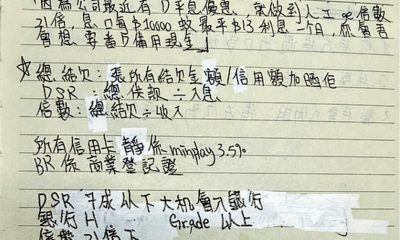 因為公司最近有D平息優惠，就做到人工90倍數
21倍，息口每$10000蚊最平$13利息一个月，你會否
會想要番D備用現金」
☆總結欠：表所有結欠金額/信用額加晒佢
DSR：總借款÷入息
倍數：總結欠÷收入
所有信用卡靜係minplay 3.5%
BR係商業登記證
DSR 7成以下大机會入銀行
銀行 H Grade 以上
倍數21倍下